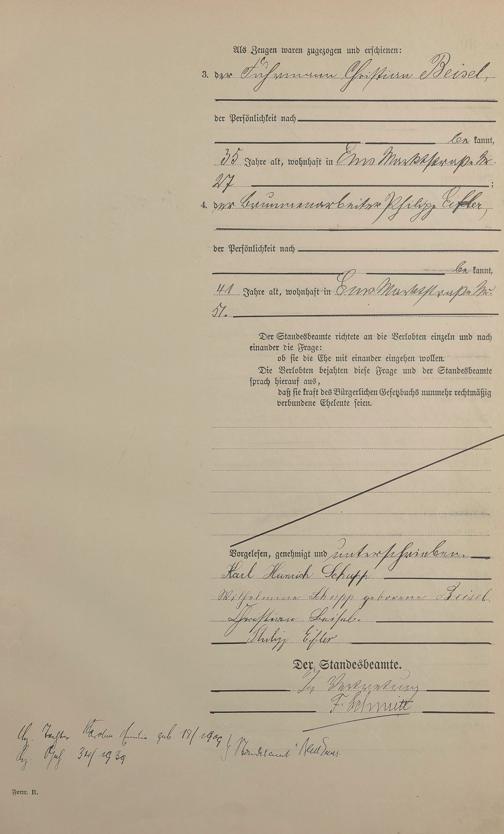 Als Zeugen waren zugezogen und erschienen:
3. der Fuhrmann Christian Beisel,
der Persönlichkeit nach
be kannt,
35 Jahre alt, wohnhaft in Ems Marktstraße Nr.
27 ;
4. der Brunnenarbeiter Philipp Eifler,
der Persönlichkeit nach
be kannt,
41 Jahre alt, wohnhaft in Ems Marktstraße Nr.
51.
Der Standesbeamte richtete an die Verlobten einzeln und nach
einander die Frage:
ob sie die Ehe mit einander eingehen wollen.
Die Verlobten bejahten diese Frage und der Standesbeamte
sprach hierauf aus,
daß sie kraft des Bürgerlichen Gesetzbuchs nunmehr rechtmäßig
verbundene Eheleute seien.
Vorgelesen, genehmigt und unterschrieben.
Karl Heinrich Schupp
Wilhelmine Schupp geborene Beisel
Christian Beisel.
Philipp Eifler
Der Standesbeamte.
In Vertretung
F. Schmitt
Tochter geb 1909
34/1939 Standesamt
Form. B.